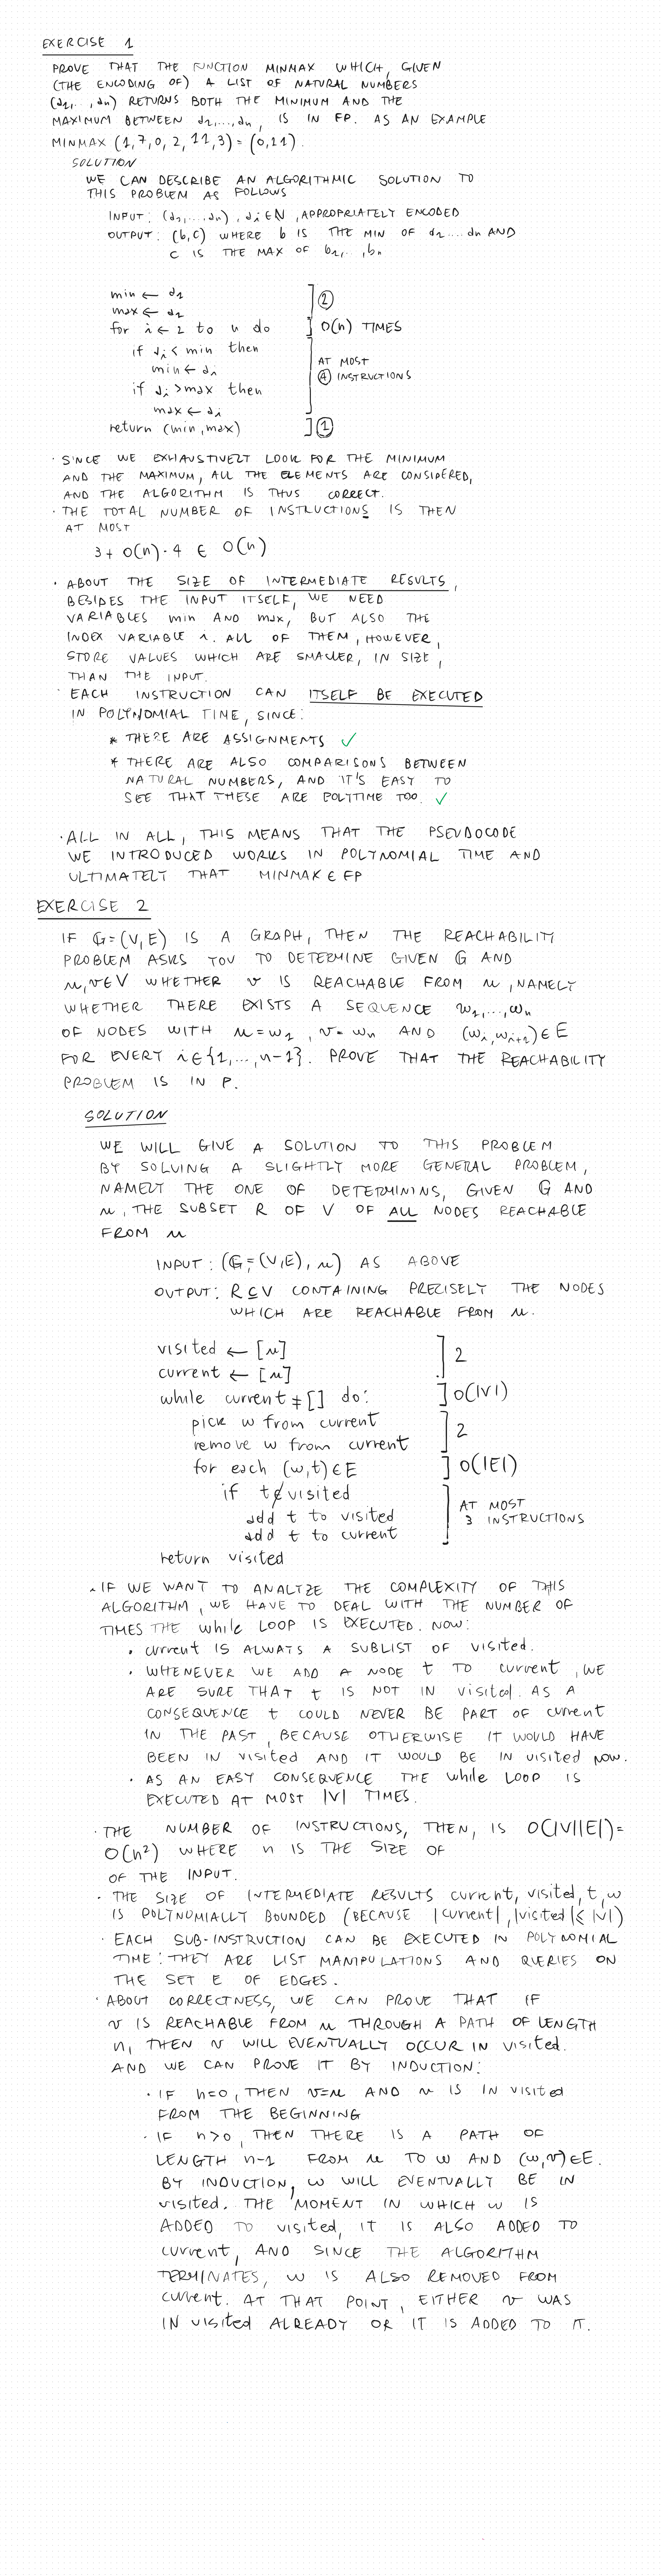 EXERCISE 1
PROVE THAT THE FUNCTION MINMAX WHICH, GIVEN
(THE ENCODING OF) A LIST OF NATURAL NUMBERS
(a1,..,an) RETURNS BOTH THE MINIMUM AND THE
MAXIMUM BETWEEN a1,...,an, IS IN FP. AS AN EXAMPLE
MINMAX (1,7,0,2,11,3)=(0,11).
SOLUTION
WE CAN DESCRIBE AN ALGORITHMIC SOLUTION TO
THIS PROBLEM AS FOLLOWS
INPUT: (a1,...,an), ai∈N, APPROPRIATELY ENCODED
OUTPUT: (b,c) WHERE b IS THE MIN OF a1....an AND
c IS THE MAX OF b1,..,bn
min ← a1
max ← a1 ] 2
for i ← 2 to n do ] O(n) TIMES
if ai < min then
min ← ai
if ai > max then
max ← ai
AT MOST
4 INSTRUCTIONS
return (min, max) ] 1
· SINCE WE EXHAUSTIVELY LOOK FOR THE MINIMUM
AND THE MAXIMUM, ALL THE ELEMENTS ARE CONSIDERED,
AND THE ALGORITHM IS THUS CORRECT.
· THE TOTAL NUMBER OF INSTRUCTIONS IS THEN
AT MOST
3 + O(n)·4 ∈ O(n)
· ABOUT THE SIZE OF INTERMEDIATE RESULTS,
BESIDES THE INPUT ITSELF, WE NEED
VARIABLES min AND max, BUT ALSO THE
INDEX VARIABLE i. ALL OF THEM, HOWEVER,
STORE VALUES WHICH ARE SMALLER, IN SIZE,
THAN THE INPUT.
· EACH INSTRUCTION CAN ITSELF BE EXECUTED
IN POLYNOMIAL TIME, SINCE:
* THERE ARE ASSIGNMENTS ✓
* THERE ARE ALSO COMPARISONS BETWEEN
NATURAL NUMBERS, AND IT'S EASY TO
SEE THAT THESE ARE POLYTIME TOO. ✓
· ALL IN ALL, THIS MEANS THAT THE PSEUDOCODE
WE INTRODUCED WORKS IN POLYNOMIAL TIME AND
ULTIMATELY THAT MINMAX ∈ FP
EXERCISE 2
IF G=(V,E) IS A GRAPH, THEN THE REACHABILITY
PROBLEM ASKS YOU TO DETERMINE GIVEN G AND
u,v∈V WHETHER v IS REACHABLE FROM u, NAMELY
WHETHER THERE EXISTS A SEQUENCE w1,...,wn
OF NODES WITH u=w1, v=wn AND (wi,wi+1)∈E
FOR EVERY i∈{1,...,n-1}. PROVE THAT THE REACHABILITY
PROBLEM IS IN P.
SOLUTION
WE WILL GIVE A SOLUTION TO THIS PROBLEM
BY SOLVING A SLIGHTLY MORE GENERAL PROBLEM,
NAMELY THE ONE OF DETERMINING, GIVEN G AND
u, THE SUBSET R OF V OF ALL NODES REACHABLE
FROM u
INPUT: (G=(V,E), u) AS ABOVE
OUTPUT: R⊆V CONTAINING PRECISELY THE NODES
WHICH ARE REACHABLE FROM u.
visited ← [u]
current ← [u] ] 2
while current ≠ [] do: ] O(|V|)
pick w from current
remove w from current ] 2
for each (w,t)∈E ] O(|E|)
if t∉visited
add t to visited
add t to current
AT MOST
3 INSTRUCTIONS
return visited
· IF WE WANT TO ANALYZE THE COMPLEXITY OF THIS
ALGORITHM, WE HAVE TO DEAL WITH THE NUMBER OF
TIMES THE while LOOP IS EXECUTED. NOW:
· current IS ALWAYS A SUBLIST OF visited.
· WHENEVER WE ADD A NODE t TO current, WE
ARE SURE THAT t IS NOT IN visited. AS A
CONSEQUENCE t COULD NEVER BE PART OF current
IN THE PAST, BECAUSE OTHERWISE IT WOULD HAVE
BEEN IN visited AND IT WOULD BE IN visited NOW.
· AS AN EASY CONSEQUENCE THE while LOOP IS
EXECUTED AT MOST |V| TIMES.
· THE NUMBER OF INSTRUCTIONS, THEN, IS O(|V||E|)=
O(n²) WHERE n IS THE SIZE OF
OF THE INPUT.
· THE SIZE OF INTERMEDIATE RESULTS current, visited, t, w
IS POLYNOMIALLY BOUNDED (BECAUSE |current|,|visited|≤|V|)
· EACH SUB-INSTRUCTION CAN BE EXECUTED IN POLYNOMIAL
TIME: THEY ARE LIST MANIPULATIONS AND QUERIES ON
THE SET E OF EDGES.
· ABOUT CORRECTNESS, WE CAN PROVE THAT IF
v IS REACHABLE FROM u THROUGH A PATH OF LENGTH
n, THEN v WILL EVENTUALLY OCCUR IN visited.
AND WE CAN PROVE IT BY INDUCTION:
· IF n=0, THEN v=u AND u IS IN visited
FROM THE BEGINNING
· IF n>0, THEN THERE IS A PATH OF
LENGTH n-1 FROM u TO w AND (w,v)∈E.
BY INDUCTION, w WILL EVENTUALLY BE IN
visited. THE MOMENT IN WHICH w IS
ADDED TO visited, IT IS ALSO ADDED TO
current, AND SINCE THE ALGORITHM
TERMINATES, w IS ALSO REMOVED FROM
current. AT THAT POINT, EITHER v WAS
IN visited ALREADY OR IT IS ADDED TO IT.